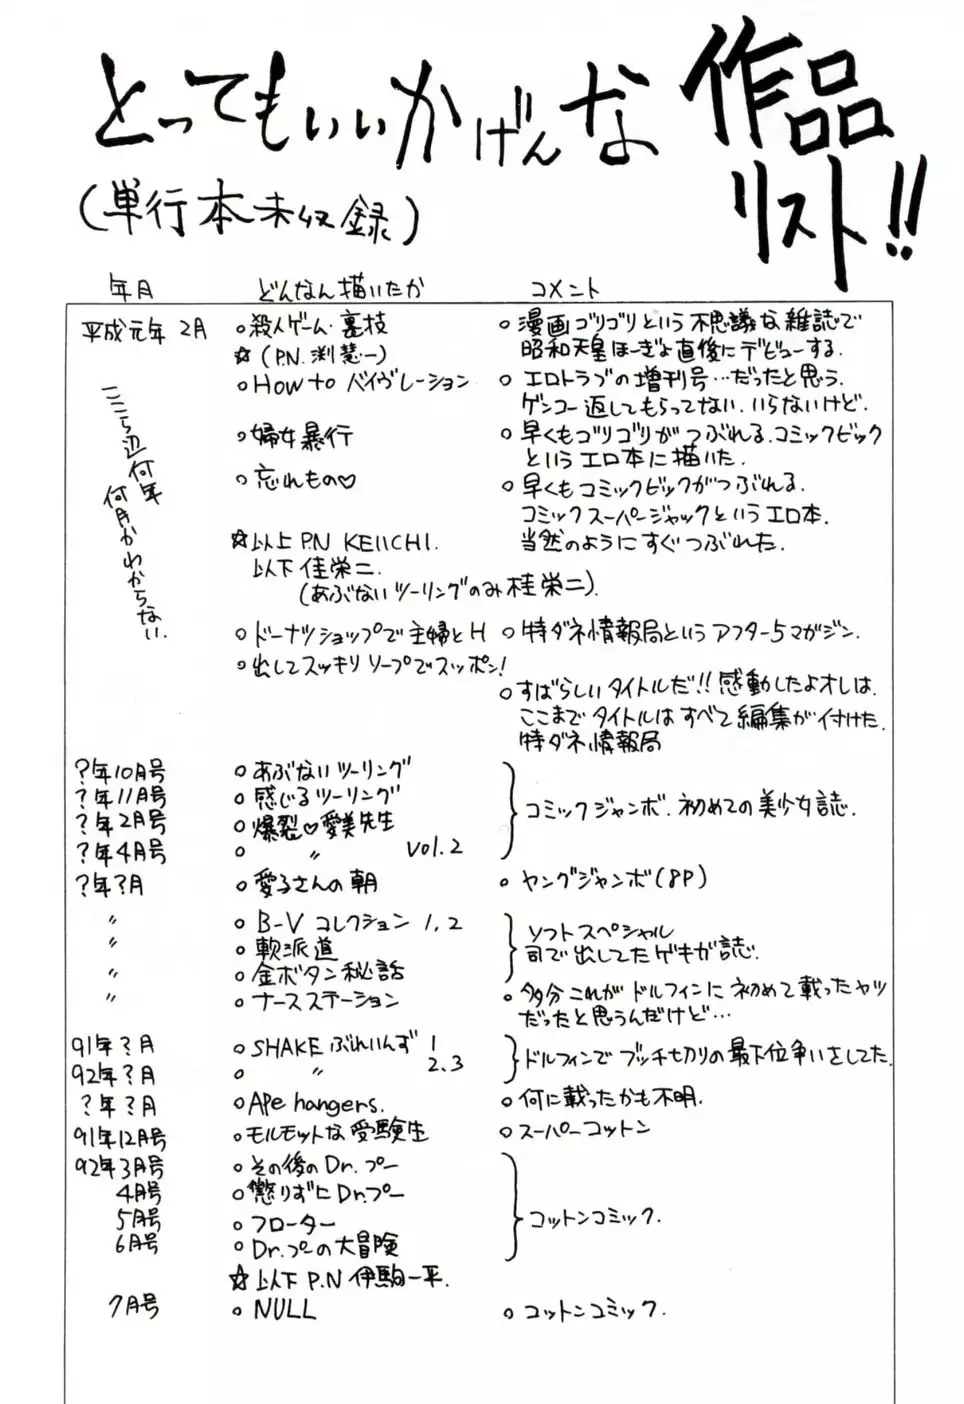 とってもいいかげんな作品
リスト!!
(単行本未収録)
年月 どんなん描いたか コメント
平成元年 2月 ○殺人ゲーム・裏技 ○漫画ゴリゴリという不思議な雑誌で
☆(P.N. 渕慧一) 昭和天皇ほーぎょ直後にデビューする.
ここら辺何年
何月かわからない.
○How to バイヴレーション ○エロトラブの増刊号…だったと思う.
ゲンコー返してもらってない. いらないけど.
○婦女暴行 ○早くもゴリゴリがつぶれる. コミックビック
というエロ本に描いた.
○忘れもの♡ ○早くもコミックビックがつぶれる.
コミックスーパージャックというエロ本.
☆以上 P.N KEIICHI. 当然のようにすぐつぶれた.
以下 佳栄二.
(あぶないツーリングのみ桂栄二).
○ドーナツショップで主婦とH ○特ダネ情報局というアフター5マガジン.
○出してスッキリ ソープでスッポン!
○すばらしいタイトルだ!! 感動したよオレは.
ここまでタイトルはすべて編集が付けた.
特ダネ情報局
?年10月号 ○あぶないツーリング
?年11月号 ○感じるツーリング コミックジャンボ. 初めての美少女誌.
?年2月号 ○爆裂♡愛美先生
?年4月号 ○ 〃 vol.2
?年?月 ○愛子さんの朝 ○ヤングジャンボ(8P)
〃 ○B-V コレクション 1, 2 ソフトスペシャル
〃 ○軟派道 司で出してたゲキガ誌.
〃 ○金ボタン秘話
〃 ○ナースステーション ○多分これがドルフィンに初めて載ったヤツ
だったと思うんだけど…
91年?月 ○SHAKE ぶれいんず 1 ドルフィンでブッチ切りの最下位争いをしてた.
92年?月 ○ 〃 2.3
?年?月 ○Ape hangers. ○何に載ったかも不明.
91年12月号 ○モルモットな受験生 ○スーパーコットン
92年3月号 ○その後のDr.プー
4月号 ○懲りずにDr.プー
5月号 ○フローター コットンコミック.
6月号 ○Dr.プーの大冒険
☆以下 P.N 伊駒一平.
7月号 ○NULL ○コットンコミック.